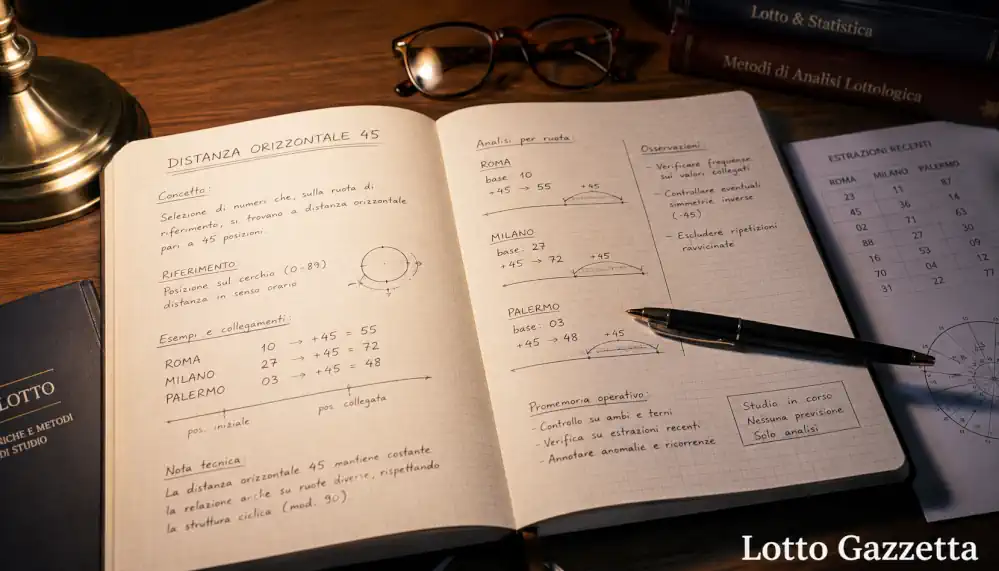 DISTANZA ORIZZONTALE 45
Concetto:
Selezione di numeri che, sulla ruota di
riferimento, si trovano a distanza orizzontale
pari a 45 posizioni.
RIFERIMENTO
Posizione sul cerchio (0-89)
distanza in senso orario
Esempi e collegamenti:
ROMA 10 → +45 = 55
MILANO 27 → +45 = 72
PALERMO 03 → +45 = 48
pos. iniziale
pos. collegata
Nota tecnica:
La distanza orizzontale 45 mantiene costante
la relazione anche su ruote diverse, rispettando
la struttura ciclica (mod. 90)
Analisi per ruota:
ROMA
base 10
+45 → 55
+45
MILANO
base: 27
+45 → 72
+45
PALERMO
base: 03
+45 → 48
+45
Osservazioni:
- Verificare frequenze
sui valori collegati
- Controllare eventuali
simmetrie inverse
(-45)
- Escludere ripetizioni
ravvicinate
Promemoria operativo:
- Controllo su ambi e terni
- Verifica su estrazioni recenti
- Annotare anomalie e ricorrenze
Studio in corso
Nessuna previsione
Solo analisi
Lotto & Statistica
Metodi di Analisi Lottologica
ESTRAZIONI RECENTI
ROMA MILANO PALERMO
23 11 87
45 36 14
02 71 63
88 27 30
16 53 09
70 04 12
31 22 77
LOTTO
RICHE E METODI
DI STUDIO
Lotto Gazzetta